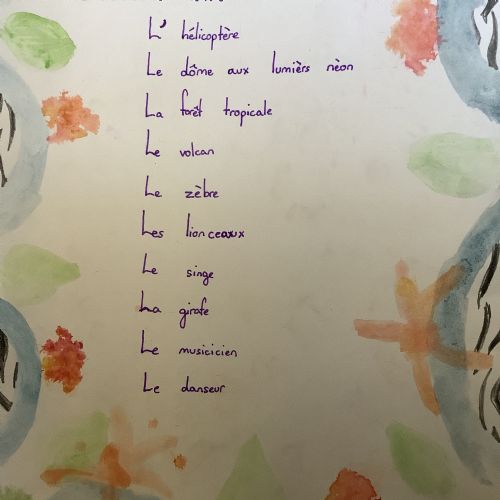 L' hélicoptère
Le dôme aux lumièrs nèon
La forêt tropicale
Le volcan
Le zèbre
Les lionceaux
Le singe
La girafe
Le musicicien
Le danseur